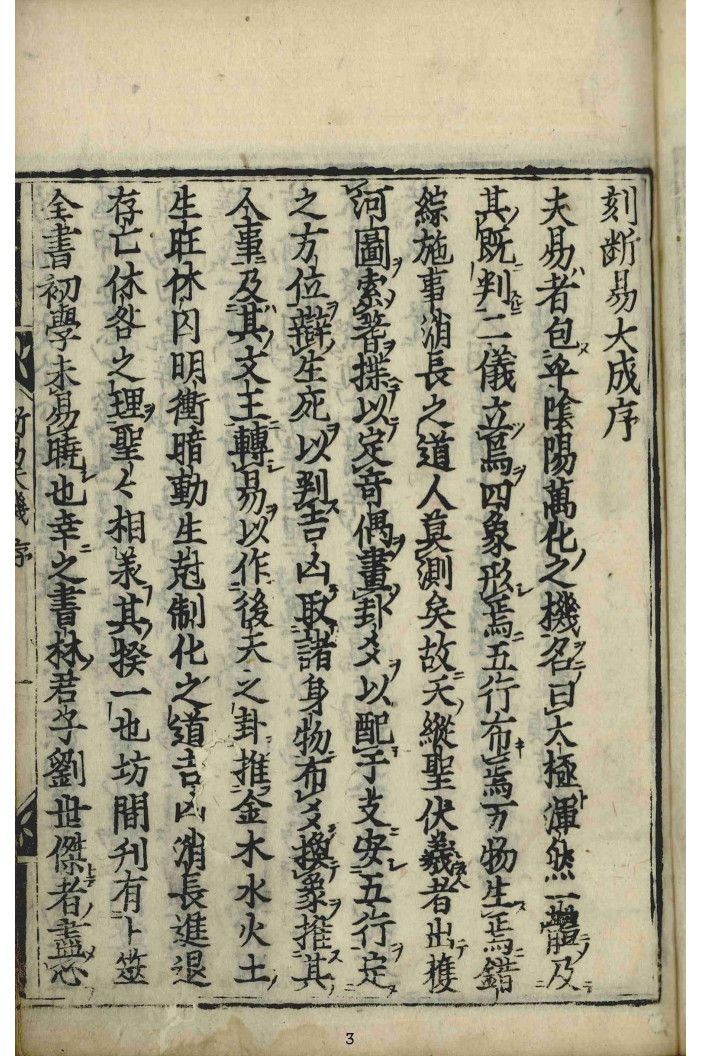 刻斷易大成序
夫易者包乎陰陽萬化之機名曰太極渾然一體及
其既判二儀立焉四象形焉五行布焉万物生焉錯
綜施事消長之道人莫測矣故天縱聖伏羲者出獲
河圖索蓍揲以定竒偶畫卦爻以配子支安五行定
之方位辯生死以判吉凶取諸身物布爻換象推其
人事及其文王轉易以作後天之卦推金木水火土
生旺休囚明衝暗動生尅制化之道吉凶消長進退
存亡休咎之理聖〻相承其揆一也坊間刋有卜筮
全書初學未易曉也幸之書林君子劉世傑者盡心
斷易天機 序
一
3